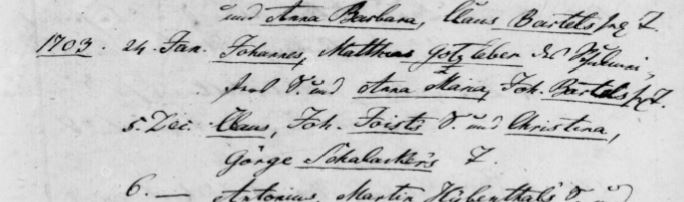 und Anna Barbara, Claus Bartels sel. T.
1703. 24. Jan. Johannes, Matthias Gotzleben des
S. und Anna Maria, Joh. Bartels sel. T.
5. Dec. Claus, Joh. Foists S. und Christina,
Görge Schalacker's T.
6. — Antonius, Martin Hübenthal's S. u.